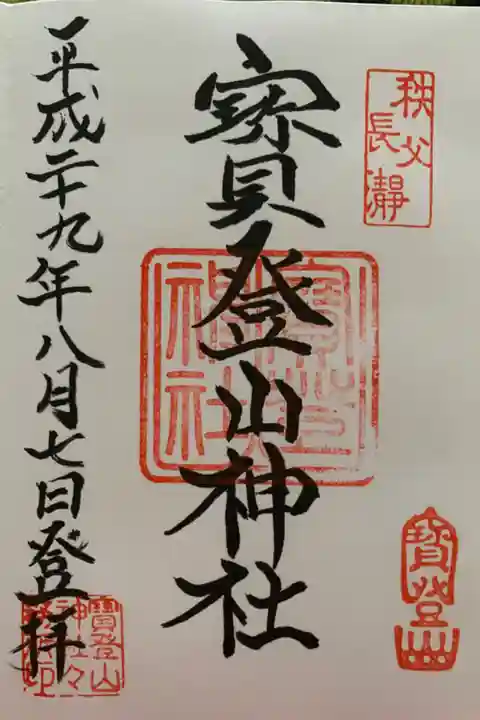 秩父
長瀞
寳登山神社
寳登山
神社
寳登山
平成二十九年八月七日登拝
寳登山
神社々